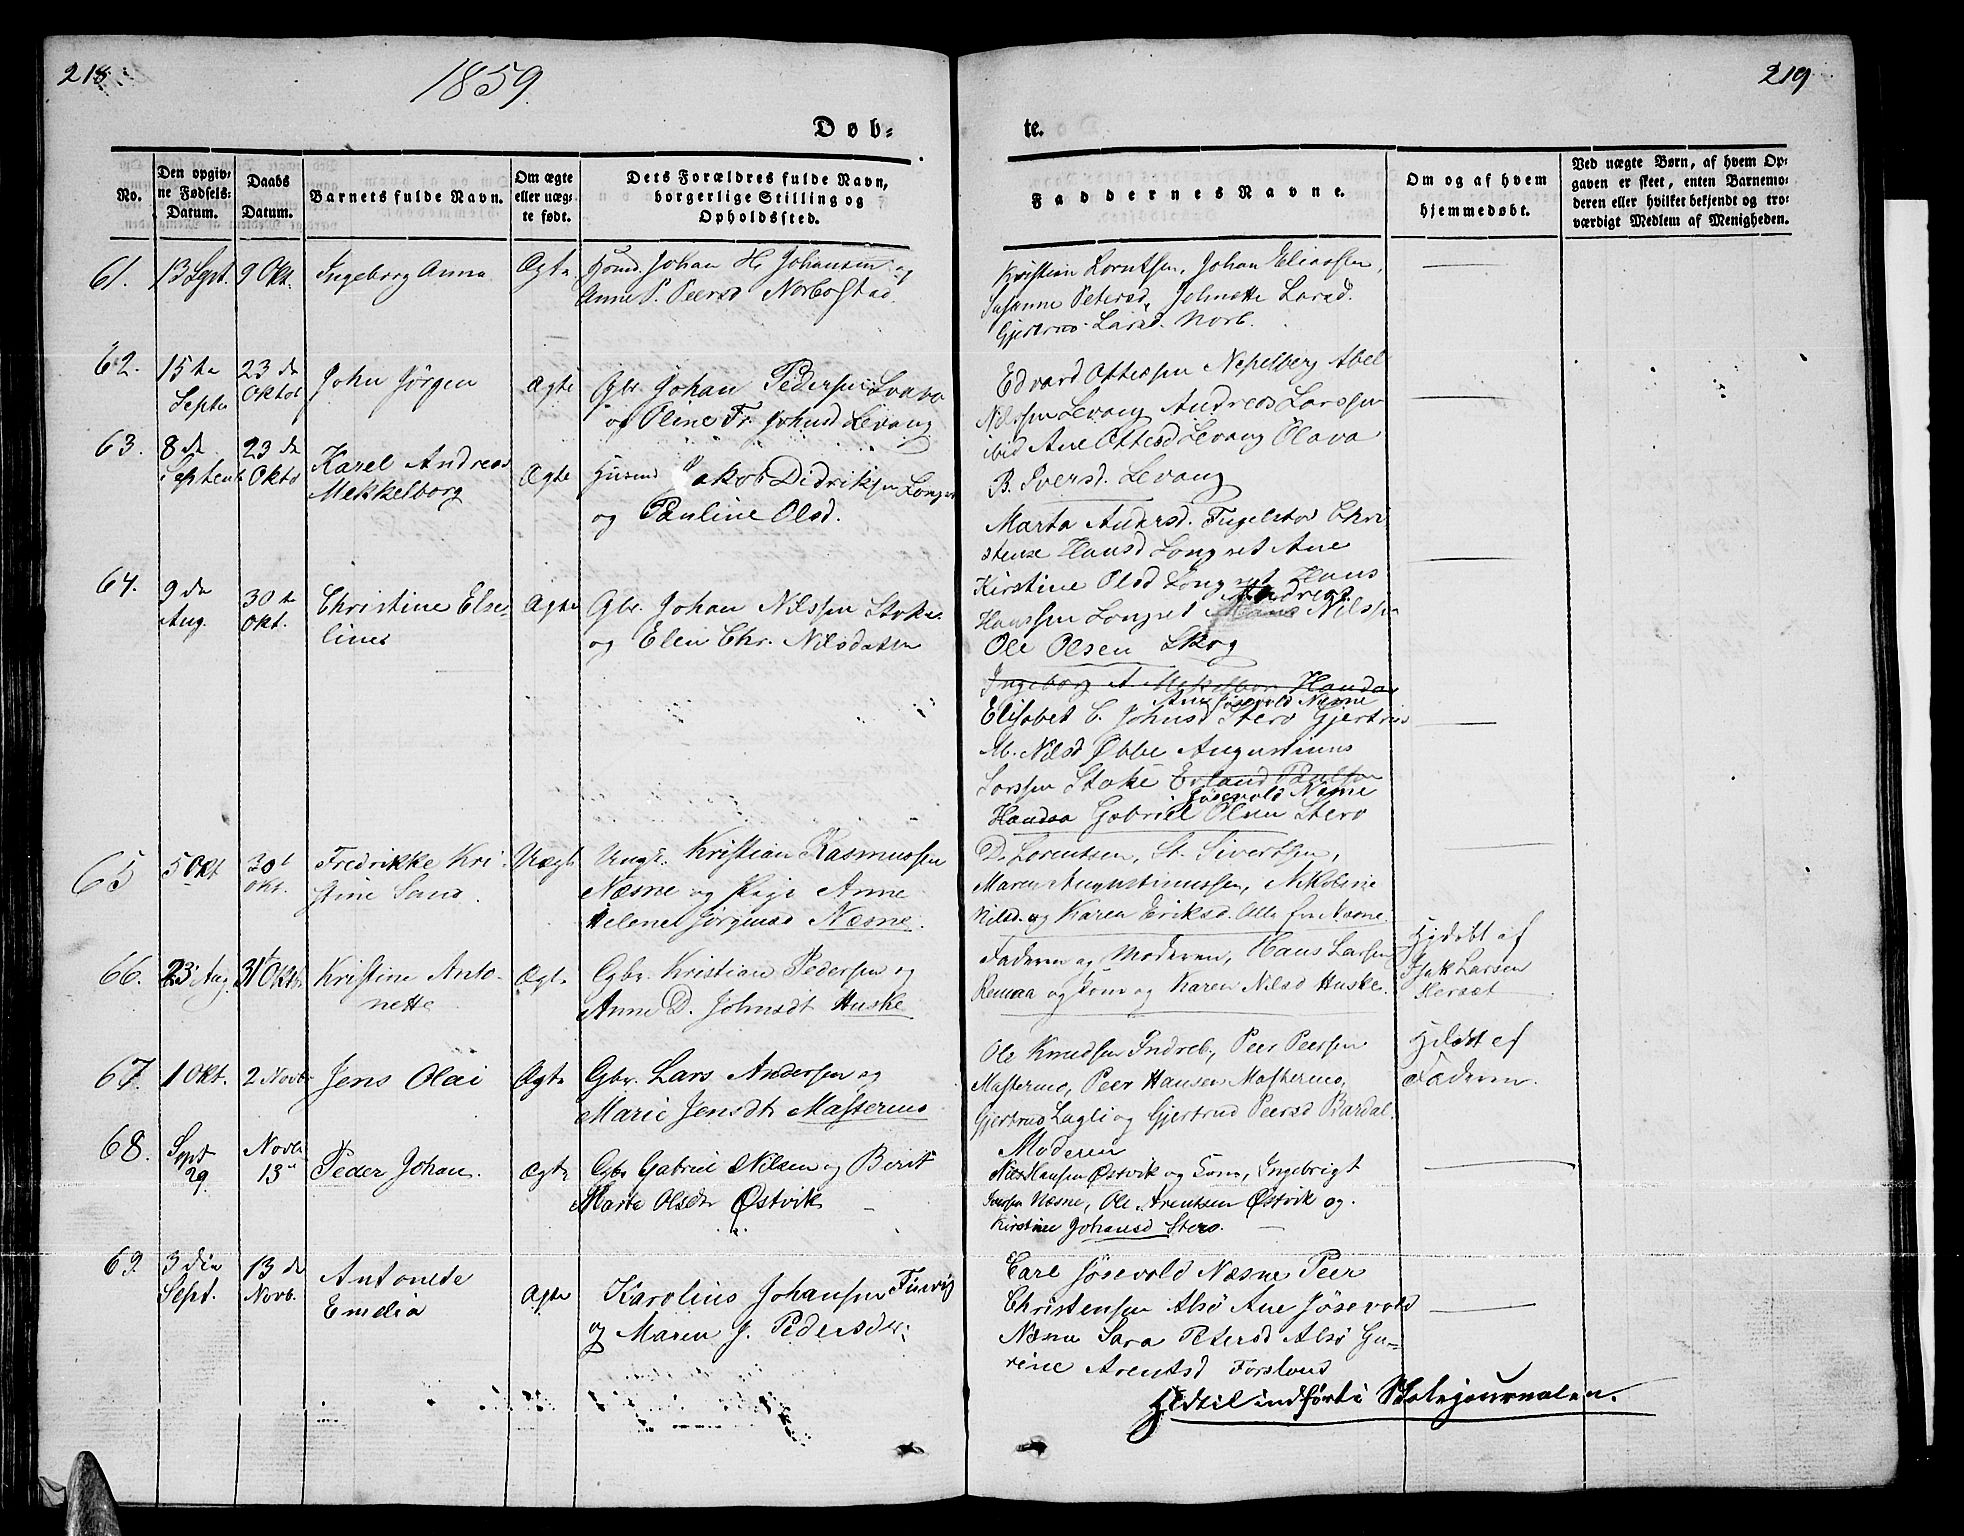 218
1859.
219
Døb-
te.
No.
Den opgiv-
ne Fødsels-
Datum.
Daabs
Datum.
Barnets fulde Navn.
Om ægte
eller uæg-
te født.
Dets Forældres fulde Navn,
borgerlige Stilling og
Opholdssted.
Faddernes Navne.
Om og af hvem
hjemmedøbt.
Ved uægte Børn, af hvem Op-
gaven er skeet, enten Barnemo-
deren eller hvilket bekjendt og tro-
værdigt Medlem af Menigheden.
61.
13 Sept.
9 Okt.
Ingeborg Anna
Ægte
Huusm. Johan H. Johansen og
Anne P. Peersd Norbostad.
Kristian Lorntsen, Johan Eliassen,
Susanne Petersd, Johnette Larsd.
Gjertrud Larsd. Norb.
62.
15 de
Septe
23 de
Oktob
John Jørgen
Ægte
Gbr. Johan Pedersen
og Oline Fr. Johnsd Levang
Edvard Ottessen Nepelberg Abel
Nilssen Levang Andreas Larssen
ibid Ane Ottesd Levang Olava
B. Iversd. Levang
63.
8 de
Septemb
23 de
Oktb
Karel Andreas
Mekkelborg
Ægte
Husmd Jakob Didriksen Longset
og Pauline Olsd.
Marta Andersd. Fugelstad Chri
stense Hansd Longset Ane
Kirstine Olsd Longset Hans
Hanssen Longset Andreas Nilssen
Ole Olsen Skog
64.
9 de
Aug.
30 te
Okt.
Christine Else-
lines
Ægte
Gbr. Johan Nilssen Stokke
og Elen Chr. Nilsdatter
Ingeborg A. Mekelbor Handa
Ane Jøsevold Næsne
Elisabet C. Johnsd Stero Gjertrud
M. Nilsd Øbbe Augustinus
Larssen Stoke Erland Paulsen
Jøsevold Næsne
Handsa Gabriel Olsen Stero
65
5 Okt
30 t
Okt.
Fredrikke Kri
stine Sand.
Uægte
Ungk. Kristian Rasmussen
Næsne og Pige Anne
Helene Jørgensd Næsne.
D. Lorentsen, St. Sivertsen,
Maren Augustinussen, Nikoline
Nilsd. og Karen Eriksd. Alle fra Næsne.
66.
23 Aug.
31 Oktb.
Kristine Anto-
nette
Ægte
Gbr. Kristian Pedersen og
Anne D. Johnsdt Huske
Faderen og Moderen, Hans Larsen
Remaa og Kone og Karen Nilsd Huske.
Hjdøbt af
Isak Larsen
67.
1 Okt.
2 Novb
Jens Olai
Ægte
Gbr. Lars Andersen og
Marie Jensdt. Mastermo
Ole Knudsen Indreb., Peer Peersen
Mastermo, Peer Hansen Mastermo,
Gjertrud Lagli og Gjertrud Peersd Bardal.
Moderen
Hjdøbt af
Faderen.
68.
Sept
29.
Novbr
13
Peder Johan.
Ægte
Gbr Gabriel Nilsen og Berit
Marta Olsdtr Østvik
Nils Hansen Østvik og Kone, Ingebrigt
Iversen Næsne, Ole Arentsen Østvik og.
Kirstine Johansd Stero.
69
3 die
Sept.
13 de
Novb.
Antonete
Emelia
Ægte
Karolius Johansen Finvig
og Maren J. Pedersdtr.
Carl Jøsevold Næsne Peer
Christensen Alsø Ane Jøsevold
Næsne Sara Petersd Alsø Gu-
rine Arentsd Forslund
Hidtil indført i Skolejournalen.